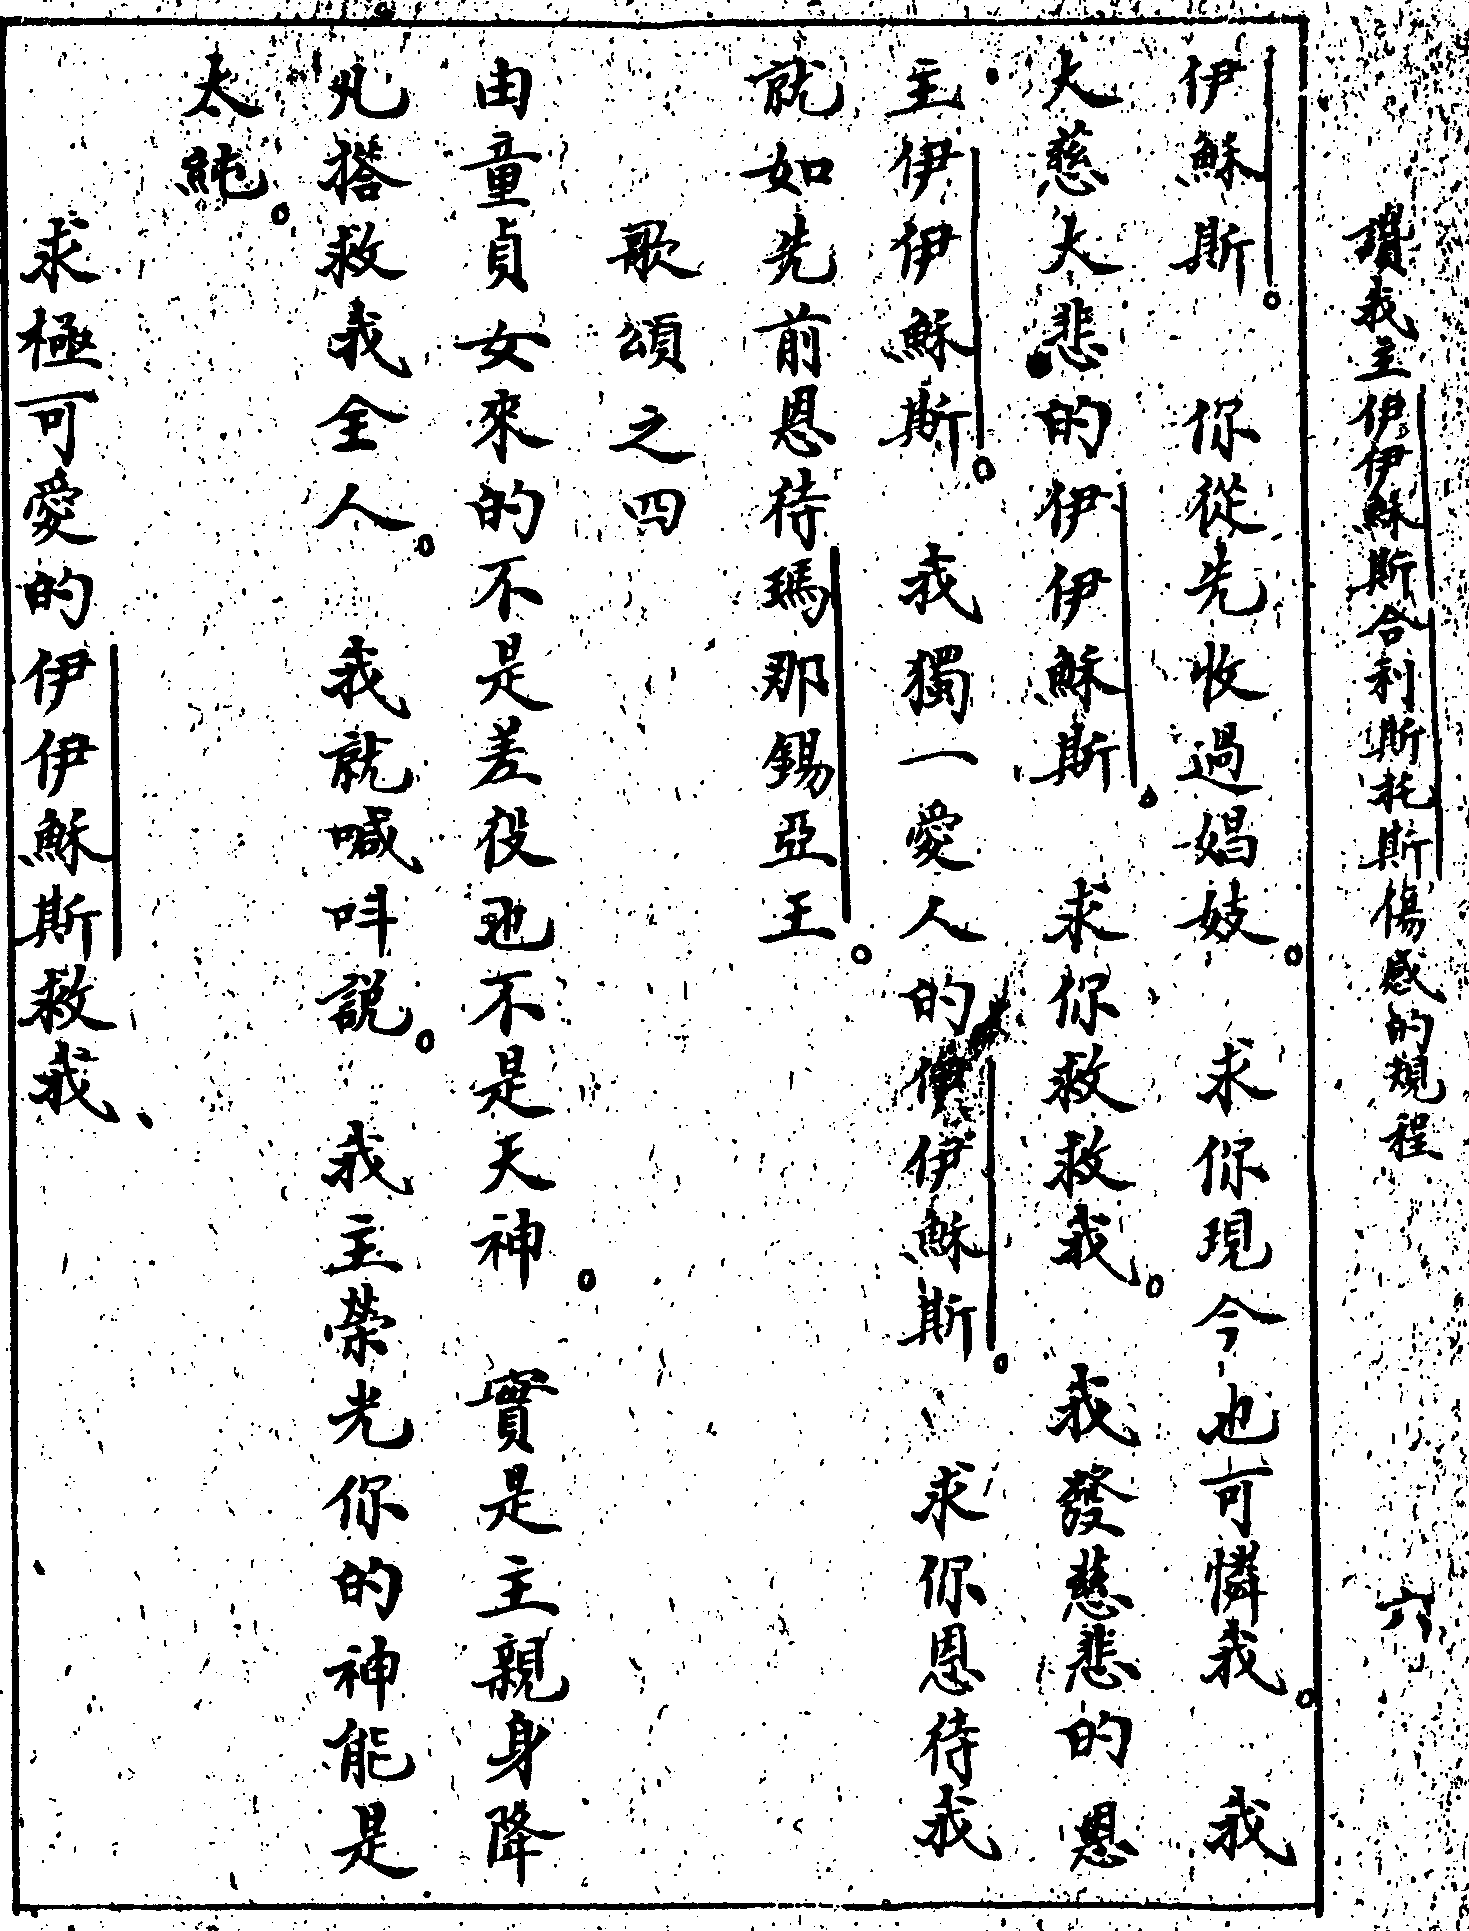 讚我主伊伊穌斯合利斯托斯傷感的規程 六
伊穌斯。你從先收過娼妓。求你現今也可憐我。我
大慈大悲的伊伊穌斯。求你救救我。我發慈悲的恩
主伊伊穌斯。我獨一愛人的伊伊穌斯。求你恩待我
就如先前恩待瑪那錫亞王。
歌頌之四
由童貞女來的不是差役也不是天神。實是主親身降
凡搭救我全人。我就喊呌說。我主榮光你的神能是
太純。
求極可愛的伊伊穌斯救我、